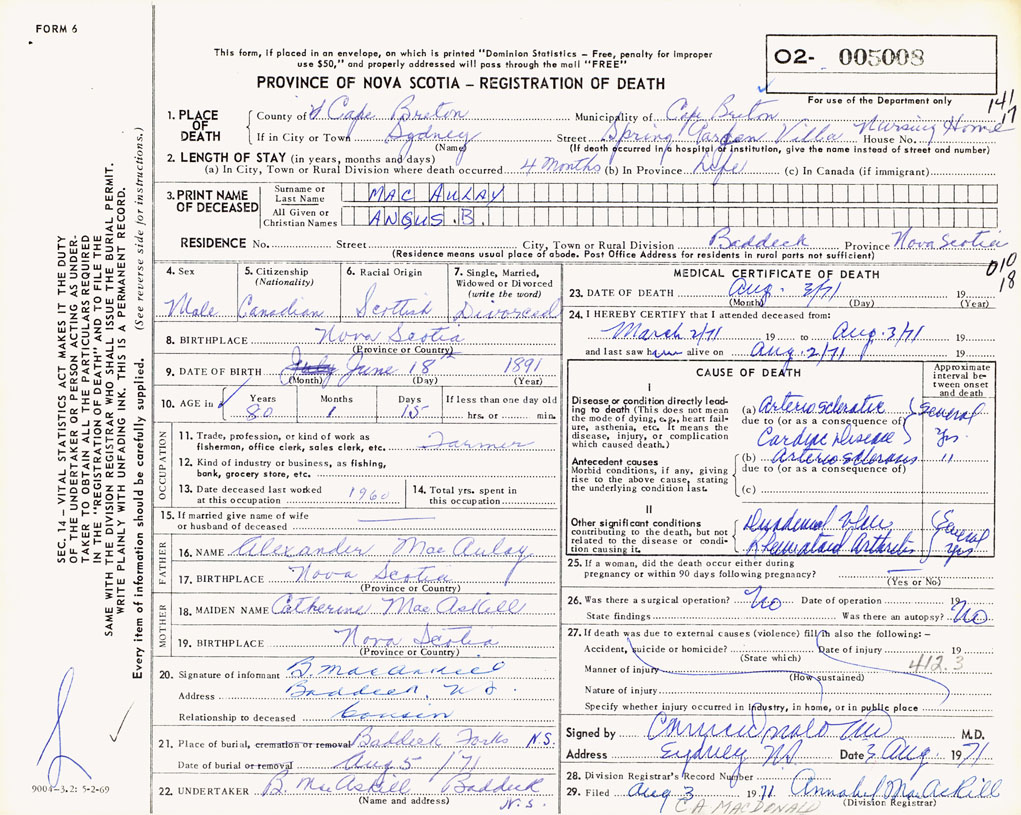 FORM 6
This form, if placed in an envelope, on which is printed "Dominion Statistics – Free, penalty for improper
use $50," and properly addressed will pass through the mail "FREE"
PROVINCE OF NOVA SCOTIA – REGISTRATION OF DEATH
O2- 005008
For use of the Department only
141
17
1. PLACE OF DEATH
County of Cape Breton Municipality of Cape Breton
If in City or Town Sydney Street Spring Garden Villa Nursing Home House No.
(Name) (If death occurred in a hospital or institution, give the name instead of street and number)
2. LENGTH OF STAY (in years, months and days)
(a) In City, Town or Rural Division where death occurred 4 Months (b) In Province Life (c) In Canada (if immigrant)
3. PRINT NAME OF DECEASED
Surname or Last Name MAC AULAY
All Given or Christian Names ANGUS. B.
RESIDENCE No. Street City, Town or Rural Division Baddeck Province Nova Scotia
(Residence means usual place of abode. Post Office Address for residents in rural parts not sufficient)
010
18
4. Sex Male
5. Citizenship (Nationality) Canadian
6. Racial Origin Scottish
7. Single, Married, Widowed or Divorced (write the word) Divorced
8. BIRTHPLACE Nova Scotia
(Province or Country)
9. DATE OF BIRTH July June 18th 1891
(Month) (Day) (Year)
10. AGE in Years 80 Months 1 Days 15 If less than one day old hrs. or min.
OCCUPATION
11. Trade, profession, or kind of work as
fisherman, office clerk, sales clerk, etc. Farmer
12. Kind of industry or business, as fishing,
bank, grocery store, etc.
13. Date deceased last worked at this occupation 1960
14. Total yrs. spent in this occupation
15. If married give name of wife
or husband of deceased
FATHER
16. NAME Alexander MacAulay
17. BIRTHPLACE Nova Scotia
(Province or Country)
MOTHER
18. MAIDEN NAME Catherine MacAskill
19. BIRTHPLACE Nova Scotia
(Province or Country)
20. Signature of informant B. MacAskill
Address Baddeck, N.S.
Relationship to deceased Cousin
21. Place of burial, cremation or removal Baddeck Forks N.S.
Date of burial or removal Aug 5 / 71
22. UNDERTAKER B. MacAskill Baddeck
(Name and address) N.S.
MEDICAL CERTIFICATE OF DEATH
23. DATE OF DEATH Aug. 3/71 19
(Month) (Day) (Year)
24. I HEREBY CERTIFY that I attended deceased from:
March 2/71 19 to Aug. 3/71
and last saw him alive on Aug. 2/71 19
CAUSE OF DEATH
Approximate interval between onset and death
I
Disease or condition directly leading to death (This does not mean the mode of dying, e.g., heart failure, asthenia, etc. It means the disease, injury, or complication which caused death.)
(a) Arteriosclerotic
due to (or as a consequence of)
Cardiac Disease
Several
Yrs.
Antecedent causes
Morbid conditions, if any, giving rise to the above cause, stating the underlying condition last.
(b) Arteriosclerosis "
due to (or as a consequence of)
(c)
II
Other significant conditions
contributing to the death, but not related to the disease or condition causing it.
Duodenal Ulcer
Rheumatoid Arthritis
Several
Yrs
25. If a woman, did the death occur either during
pregnancy or within 90 days following pregnancy?
(Yes or No)
26. Was there a surgical operation? No Date of operation 19
State findings Was there an autopsy? No
27. If death was due to external causes (violence) fill in also the following: –
Accident, suicide or homicide? Date of injury 19
(State which) 412.3
Manner of injury
(How sustained)
Nature of injury
Specify whether injury occurred in Industry, in home, or in public place
Signed by M.D.
Address Sydney NS Date 3 Aug. 1971
28. Division Registrar's Record Number
29. Filed Aug 3 1971 Annabel MacAskill
(Division Registrar)
C A MACDONALD
SEC. 14 – VITAL STATISTICS ACT MAKES IT THE DUTY
OF THE UNDERTAKER OR PERSON ACTING AS UNDER-
TAKER TO OBTAIN ALL THE PARTICULARS REQUIRED
IN THE "REGISTRATION OF DEATH" AND TO FILE THE
SAME WITH THE DIVISION REGISTRAR WHO SHALL ISSUE THE BURIAL PERMIT.
WRITE PLAINLY WITH UNFADING INK. THIS IS A PERMANENT RECORD.
Every item of information should be carefully supplied. (See reverse side for instructions.)
9004-3.2: 5-2-69